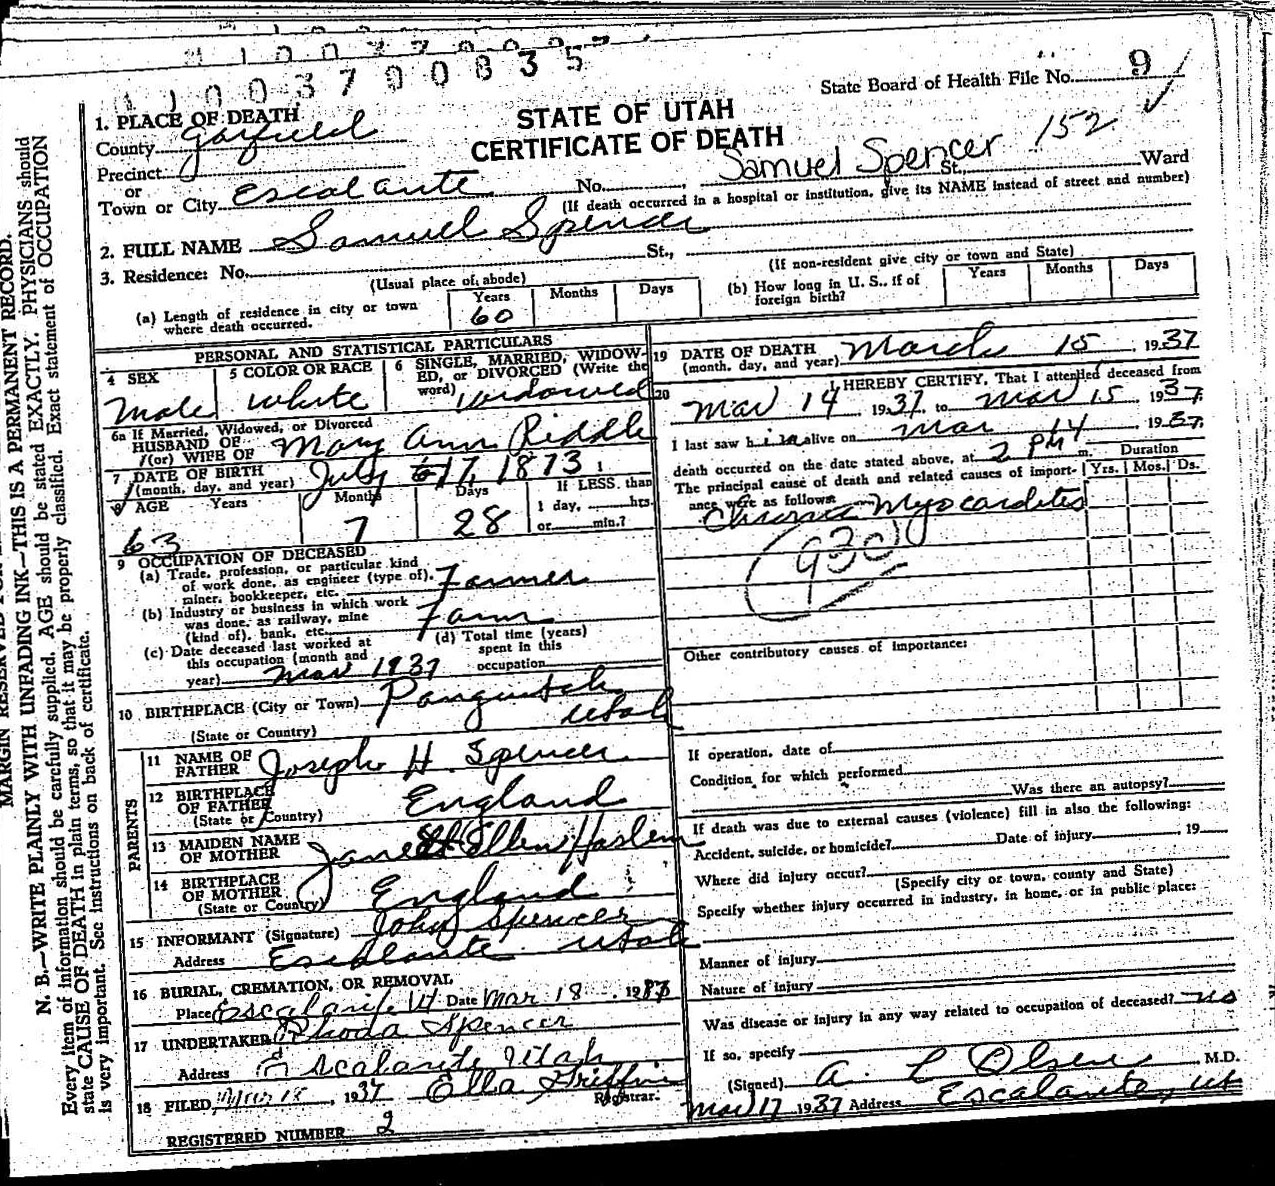 1 1 0 0 3 7 0 0 8 3 5
State Board of Health File No. 9
STATE OF UTAH
CERTIFICATE OF DEATH
152
1. PLACE OF DEATH
County Garfield
Precinct
or
Town or City Escalante No. Samuel Spencer St., Ward
(If death occurred in a hospital or institution, give its NAME instead of street and number)
2. FULL NAME Samuel Spencer
3. Residence: No. St.,
(Usual place of abode) (If non-resident give city or town and State)
(a) Length of residence in city or town where death occurred. Years 60 Months Days
(b) How long in U. S., if of foreign birth? Years Months Days
PERSONAL AND STATISTICAL PARTICULARS
4 SEX Male
5 COLOR OR RACE White
6 SINGLE, MARRIED, WIDOWED, or DIVORCED (Write the word) Widowed
6a If Married, Widowed, or Divorced
HUSBAND OF
(or) WIFE OF Mary Ann Riddle
7 DATE OF BIRTH
(month, day, and year) July 17, 1873
8 AGE Years 63 Months 7 Days 28
If LESS than
1 day, hrs.
or min.?
9 OCCUPATION OF DECEASED
(a) Trade, profession, or particular kind
of work done, as engineer (type of),
miner, bookkeeper, etc. Farmer
(b) Industry or business in which work
was done, as railway, mine
(kind of), bank, etc. Farm
(c) Date deceased last worked at
this occupation (month and
year) Mar 1937
(d) Total time (years)
spent in this
occupation
10 BIRTHPLACE (City or Town) Panguitch
(State or Country) Utah
PARENTS
11 NAME OF
FATHER Joseph H. Spencer
12 BIRTHPLACE
OF FATHER
(State or Country) England
13 MAIDEN NAME
OF MOTHER Jane Ellen Haslem
14 BIRTHPLACE
OF MOTHER
(State or Country) England
15 INFORMANT (Signature) John Spencer
Address Escalante Utah
16 BURIAL, CREMATION, OR REMOVAL
Place Escalante Ut Date Mar 18 1937
17 UNDERTAKER Rhoda Spencer
Address Escalante Utah
18 FILED Mar 18, 1937 Ella Griffin
Registrar.
REGISTERED NUMBER 2
19 DATE OF DEATH
(month, day, and year) March 15 1937
20 I HEREBY CERTIFY, That I attended deceased from
Mar 14, 1937, to Mar 15, 1937
I last saw him alive on Mar 14, 1937,
death occurred on the date stated above, at 2 PM m.
The principal cause of death and related causes of importance were as follows:
Duration
Yrs. Mos. Ds.
Chronic Myocarditis
930
Other contributory causes of importance:
If operation, date of
Condition for which performed
Was there an autopsy?
If death was due to external causes (violence) fill in also the following:
Accident, suicide, or homicide? Date of injury 19
Where did injury occur?
(Specify city or town, county and State)
Specify whether injury occurred in industry, in home, or in public place:
Manner of injury
Nature of injury
Was disease or injury in any way related to occupation of deceased? no
If so, specify
(Signed) A. L Olsen M.D.
Mar 17 1937 Address Escalante, Ut
N. B.—WRITE PLAINLY WITH UNFADING INK—THIS IS A PERMANENT RECORD.
Every item of information should be carefully supplied. AGE should be stated EXACTLY. PHYSICIANS should
state CAUSE OF DEATH in plain terms, so that it may be properly classified. Exact statement of OCCUPATION
is very important. See instructions on back of certificate.
MARGIN RESERVED